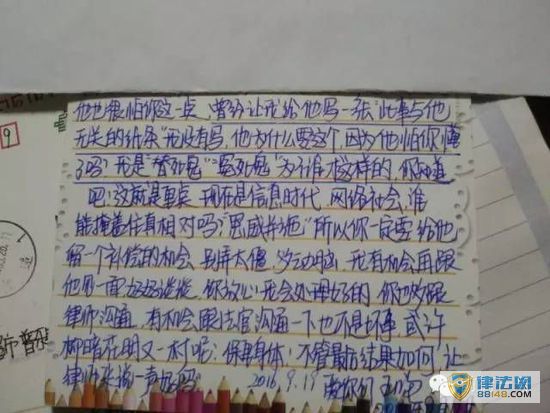 他也很怕你这一点,曾经让我给他写一张“此事与他
无关的纸条”我没有写,他为什么要这个,因为他怕你懂
了吗?我是“替死鬼”“冤死鬼”为了谁才这样的,你知道
吧!这就是重点 现在是信息时代,网络社会,谁
能掩盖住真相对吗?“恩威并施”所以你一定要给他
留一个补偿的机会,别弄太僵,多动脑,我有机会再跟
他见一面好好谈谈,你放心!我会处理好的,你也好好跟
律师沟通,有机会跟法官沟通一下也不是坏事,或许
柳暗花明又一村呢!保重身体!不管最后结果如何,让
律师来说一声好吗
2016.9.19 爱你们
律法网
88148.com
9